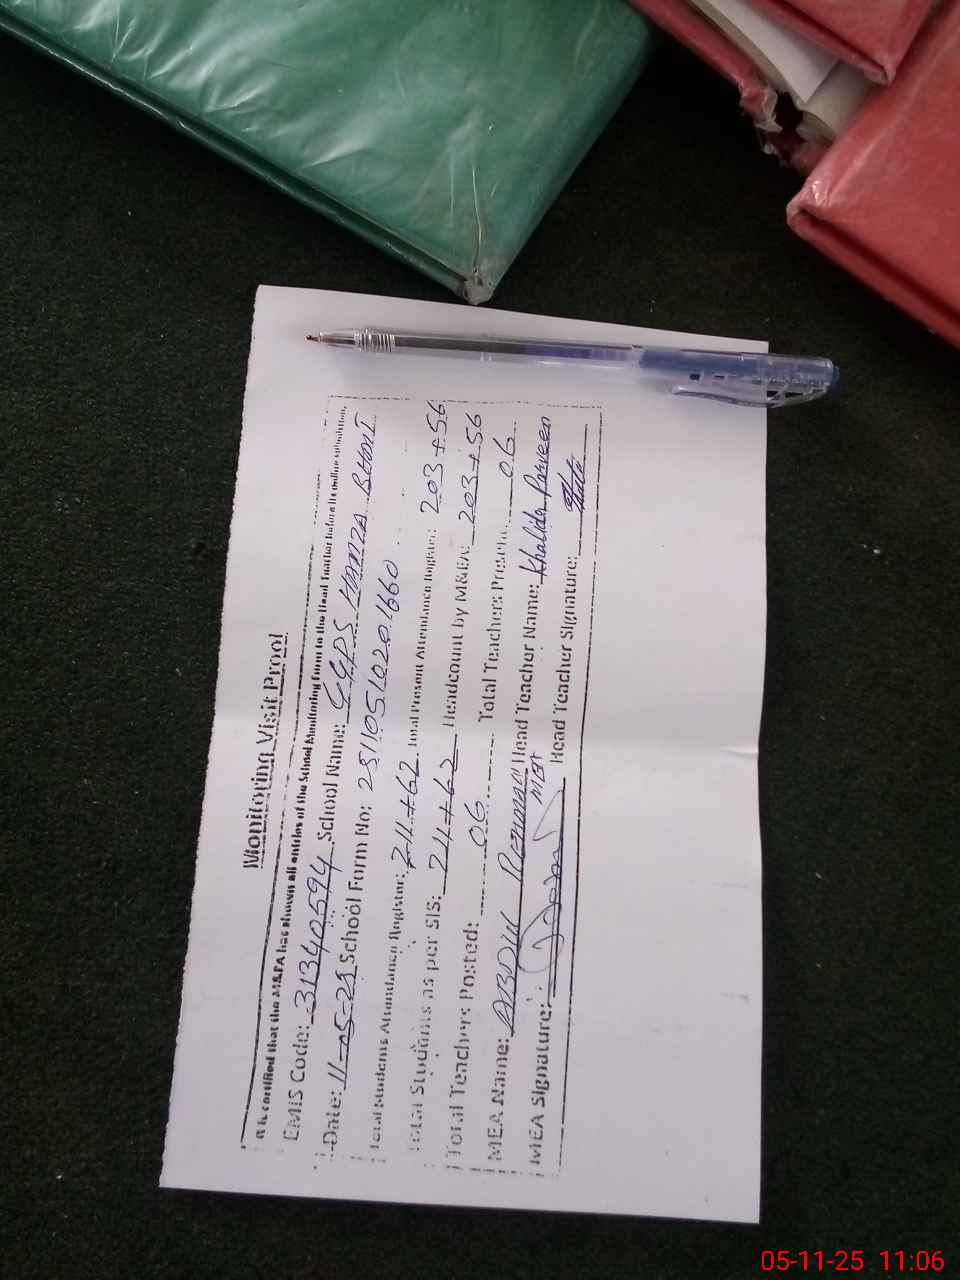 Monitoring Visit Proof
It is certified that the M&EA has shown all entries of the School Monitoring Form to the Head Teacher before its online submission.
EMIS Code: 31340594 School Name: GGPS HAMZA BHATI
Date: 11-05-25 School Form No: 25110510201660
Total Students Attendance Register: 211+62 Total Present Attendance Register: 203+56
Total Students as per SIS: 211+62 Headcount by M&EA: 203+56
Total Teachers Posted: 06 Total Teachers Present: 06
MEA Name: ABDUL Head Teacher Name: Khalida Parveen
MEA
MEA Signature: Head Teacher Signature:
05-11-25 11:06